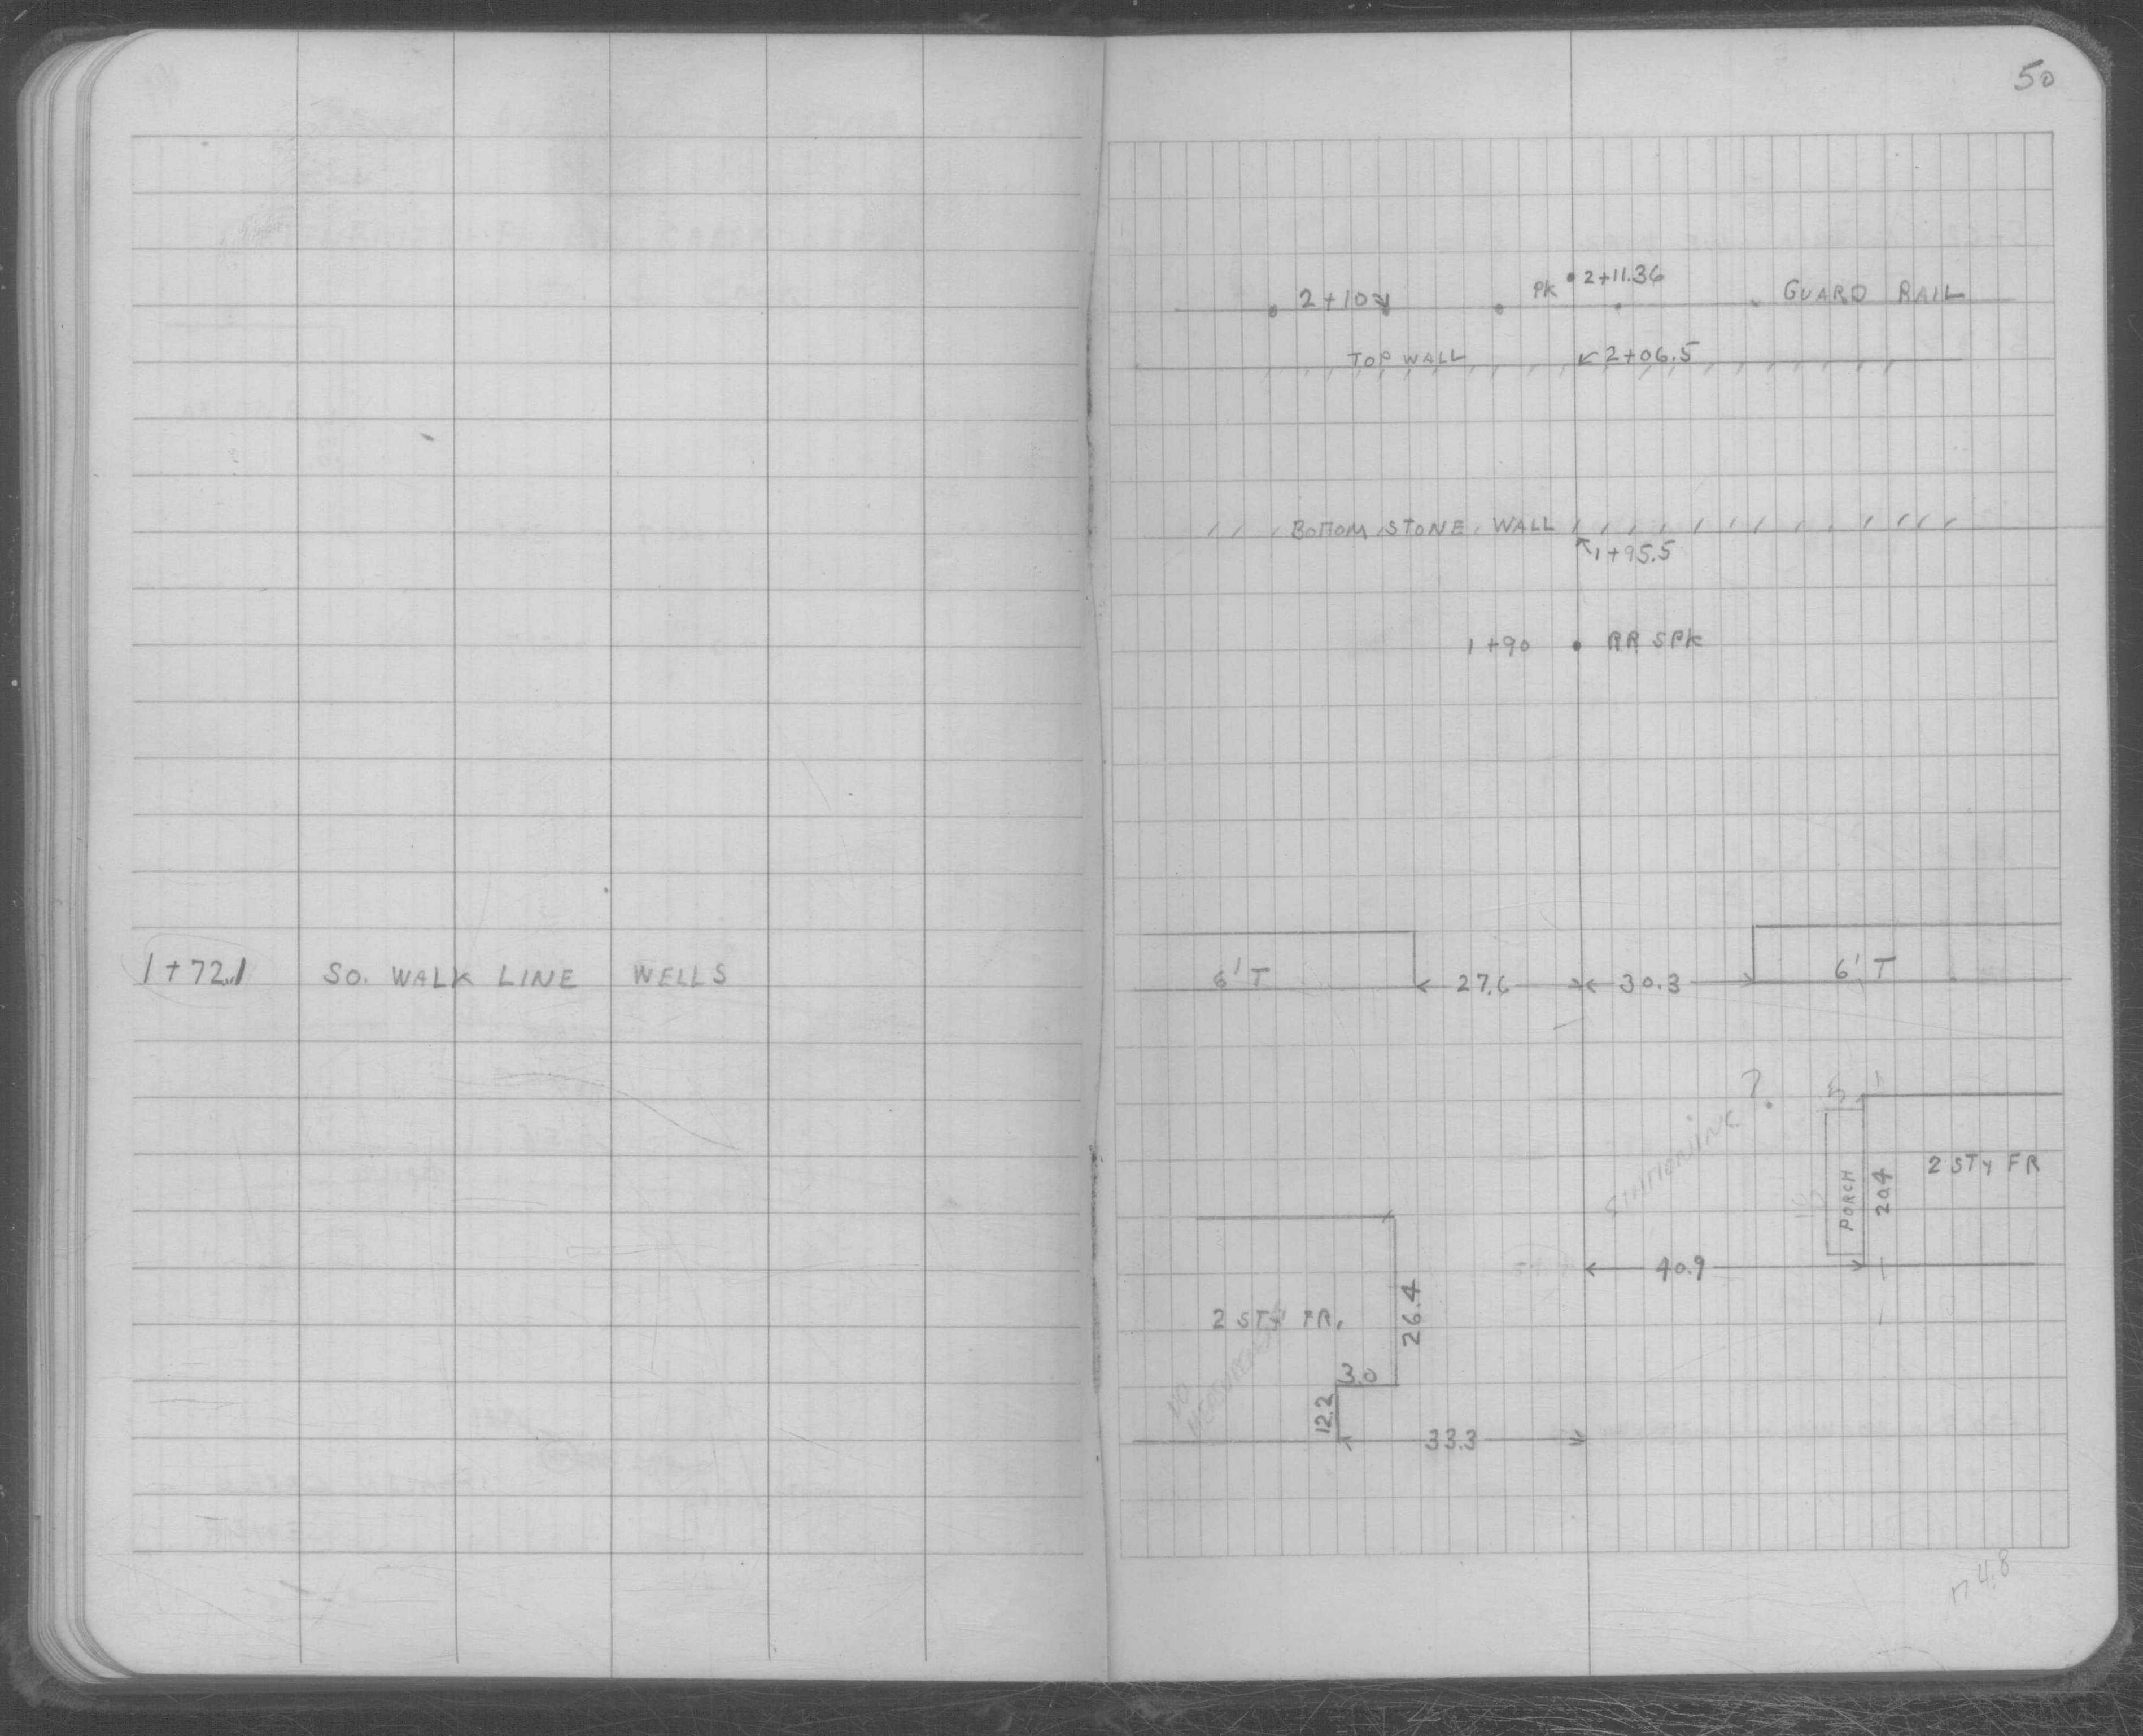 50
2+11.36
PK
2+10
GUARD RAIL
TOP WALL
2+06.5
BOTTOM STONE WALL
1+95.5
1+90
RR SPK
1+72.1 SO. WALK LINE WELLS
6' T
27.6
30.3
6' T
STATIONING ?
5'
PORCH
20.4
2 STY FR
40.9
2 STY FR.
26.4
NO
3.0
12.2
33.3